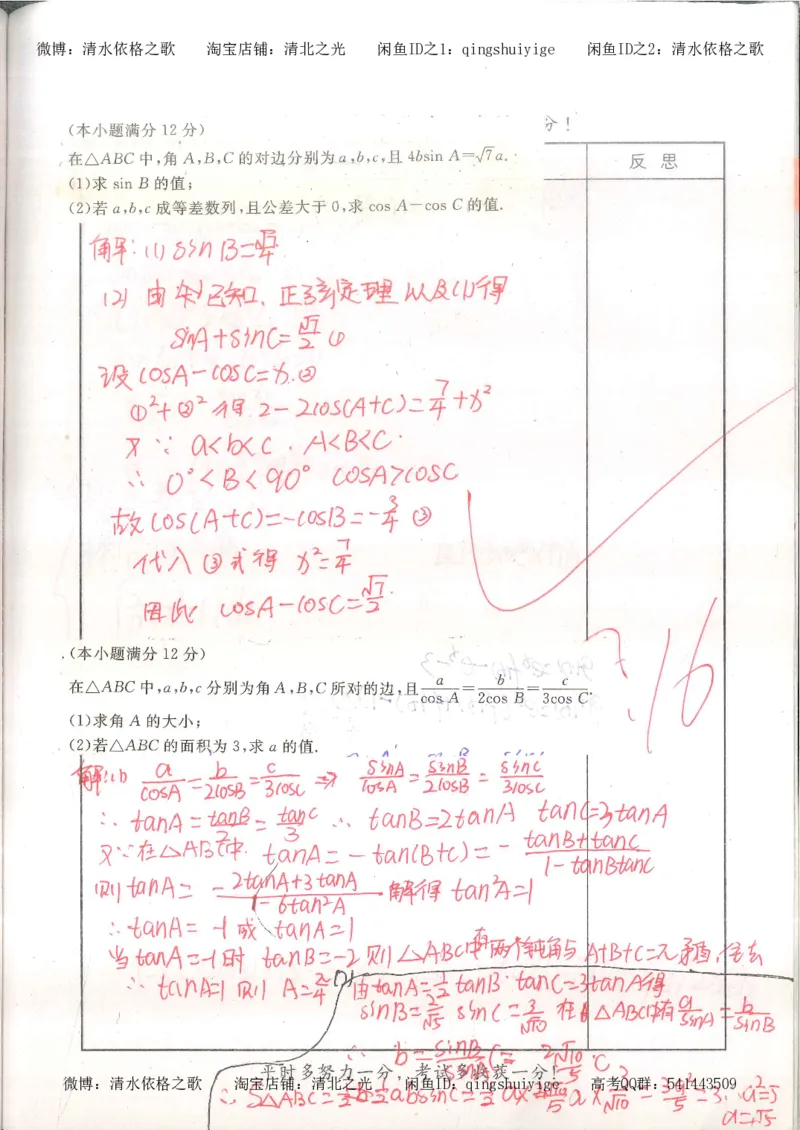 微博：清水依格之歌 淘宝店铺：清北之光 闲鱼ID之1：qingshuiyige 闲鱼ID之2：清水依格之歌
分！
(本小题满分 12 分)
反 思
在△ABC 中,角 A,B,C 的对边分别为 a,b,c,且 4bsin A=√7a.
(1)求 sin B 的值;
(2)若 a,b,c 成等差数列,且公差大于 0,求 cos A－cos C 的值.
解:(1) sinB=√7/4
(2) 由已知、正弦定理以及(1)得
sinA+sinC=√7/2 ①
设 cosA-cosC=x.②
①²+②²得 2-2cos(A+C)=7/4+x²
又∵ a<b<c . A<B<C.
∴ 0°<B<90° cosA>cosC
故 cos(A+C)=-cosB=-3/4 ③
代入③式得 x²=7/4
因此 cosA-cosC=√7/2.
16
.(本小题满分 12 分)
在△ABC 中,a,b,c 分别为角 A,B,C 所对的边,且 a/cos A=b/2cos B=c/3cos C.
(1)求角 A 的大小;
(2)若△ABC 的面积为 3,求 a 的值.
解:(1) a/cosA=b/2cosB=c/3cosC ⇒ sinA/cosA=sinB/2cosB=sinC/3cosC
∴ tanA=tanB/2=tanC/3 ∴ tanB=2tanA tanC=3tanA
又∵在△ABC中. tanA=-tan(B+C)=-(tanB+tanC)/(1-tanBtanC)
则 tanA=-(2tanA+3tanA)/(1-6tan²A) 解得 tan²A=1
∴ tanA=-1 或 tanA=1
当tanA=-1时 tanB=-2 则△ABC中有两个钝角与 A+B+C=π矛盾,舍去
∴ tanA=1 则 A=π/4 (2) 由tanA=1/2tanB tanC=3tanA得
sinB=2/√5 sinC=3/√10 在△ABC中有 a/sinA=b/sinB
∴ b=
平时多努力一分，考试多收获一分！
微博：清水依格之歌 淘宝店铺：清北之光 闲鱼ID之1：qingshuiyige 高考QQ群：541443509
∴ S△ABC=1/2absinC=1/2a×2√10/5a×3/√10=3a²/5=3. ∴ a²=5
a=√5